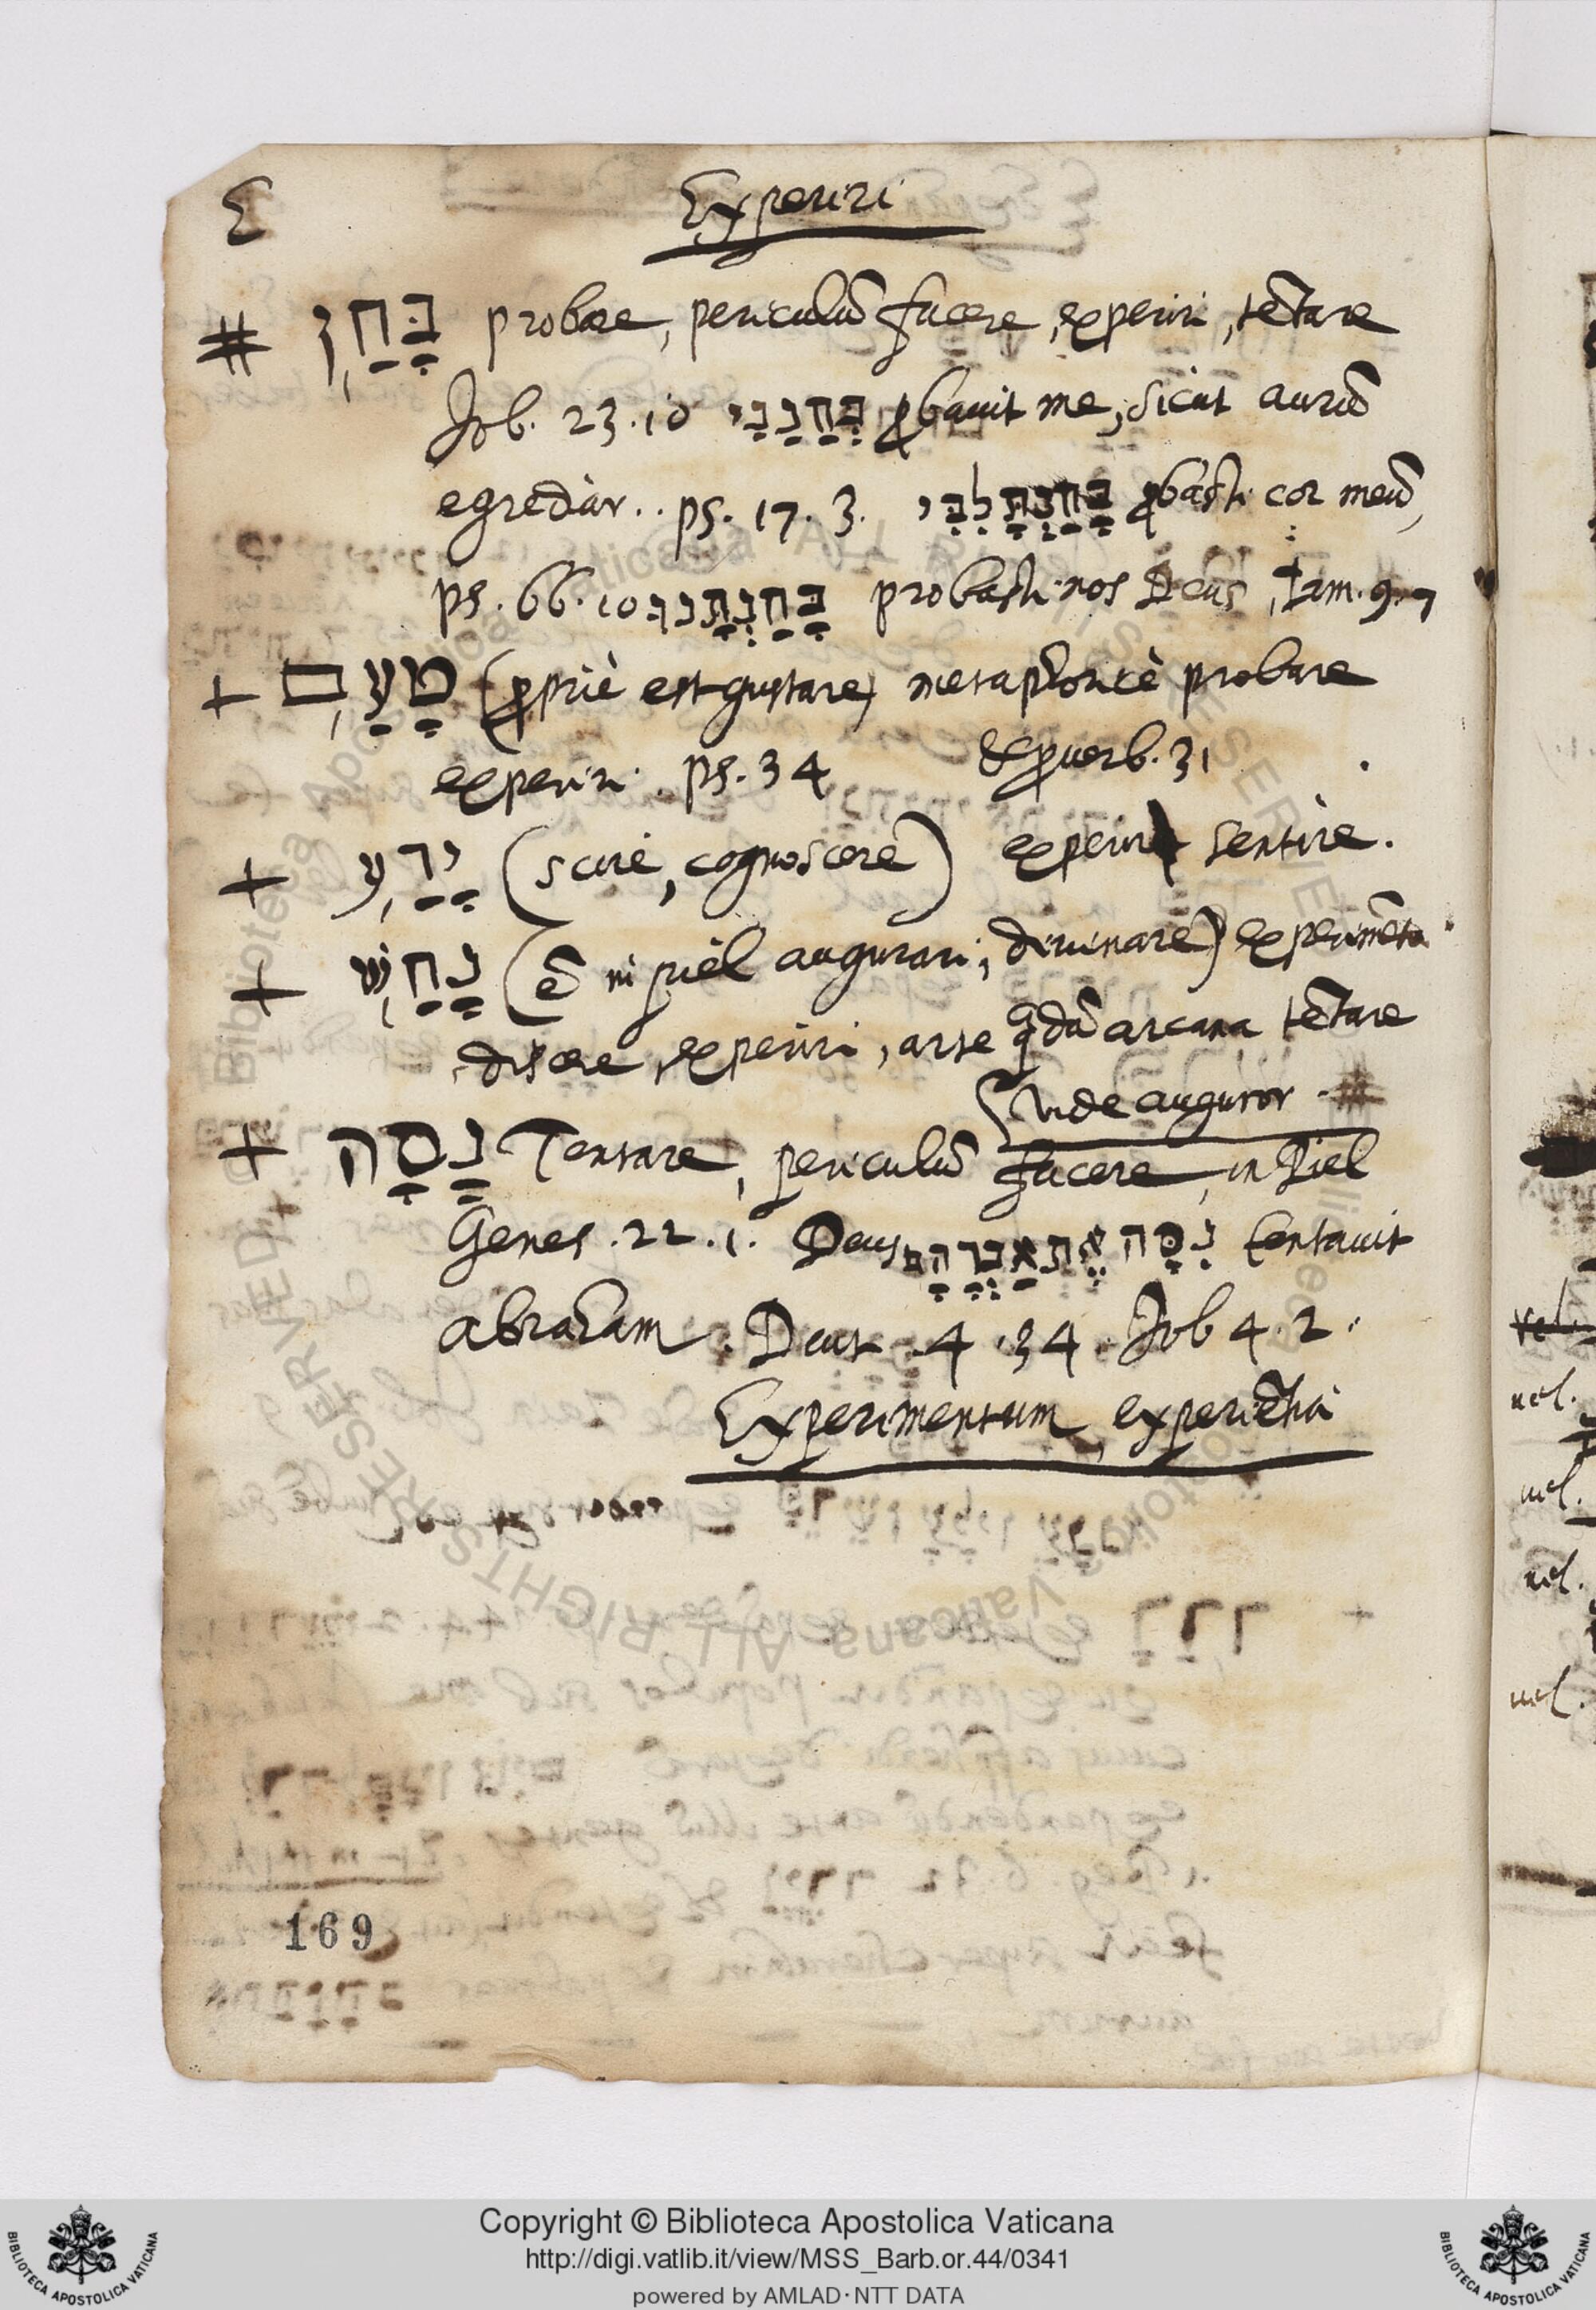 E
Experiri
# בָּחַן probare, periculū facere, experiri, tētare
Job. 23.10 בְּחָנַנִי ꝓbauit me, sicut aurū
egrediar.. ps. 17. 3. בָּחַנְתָּ לִבִּי ꝓbasti cor meū,
ps. 66. 10 בְּחַנְתָּנוּ probasti nos Deus,
+ טָעַם (ꝓpriè est gustare) metaphoricè probare
experiri. ps. 34 & ꝓuerb. 31
+ יָדַע (scire, cognoscere) experiri sentire.
+ נָחַשׁ (ē in piel augurari, diuinare) experimēto
discere, experiri, arte qdā arcana tētare
vide auguror
+ נָסָה Tentare, periculū facere, in Piel
Genes. 22. 1. Deus נִסָּה אֶת אַבְרָהָם tentauit
abraham. Deut. 4. 34. Job 4. 2.
Experimentum, experiētia
169
vel.
uel.
uel.
uel.
uel.
Copyright © Biblioteca Apostolica Vaticana
http://digi.vatlib.it/view/MSS_Barb.or.44/0341
powered by AMLAD·NTT DATA
BIBLIOTECA APOSTOLICA VATICANA
BIBLIOTECA APOSTOLICA VATICANA